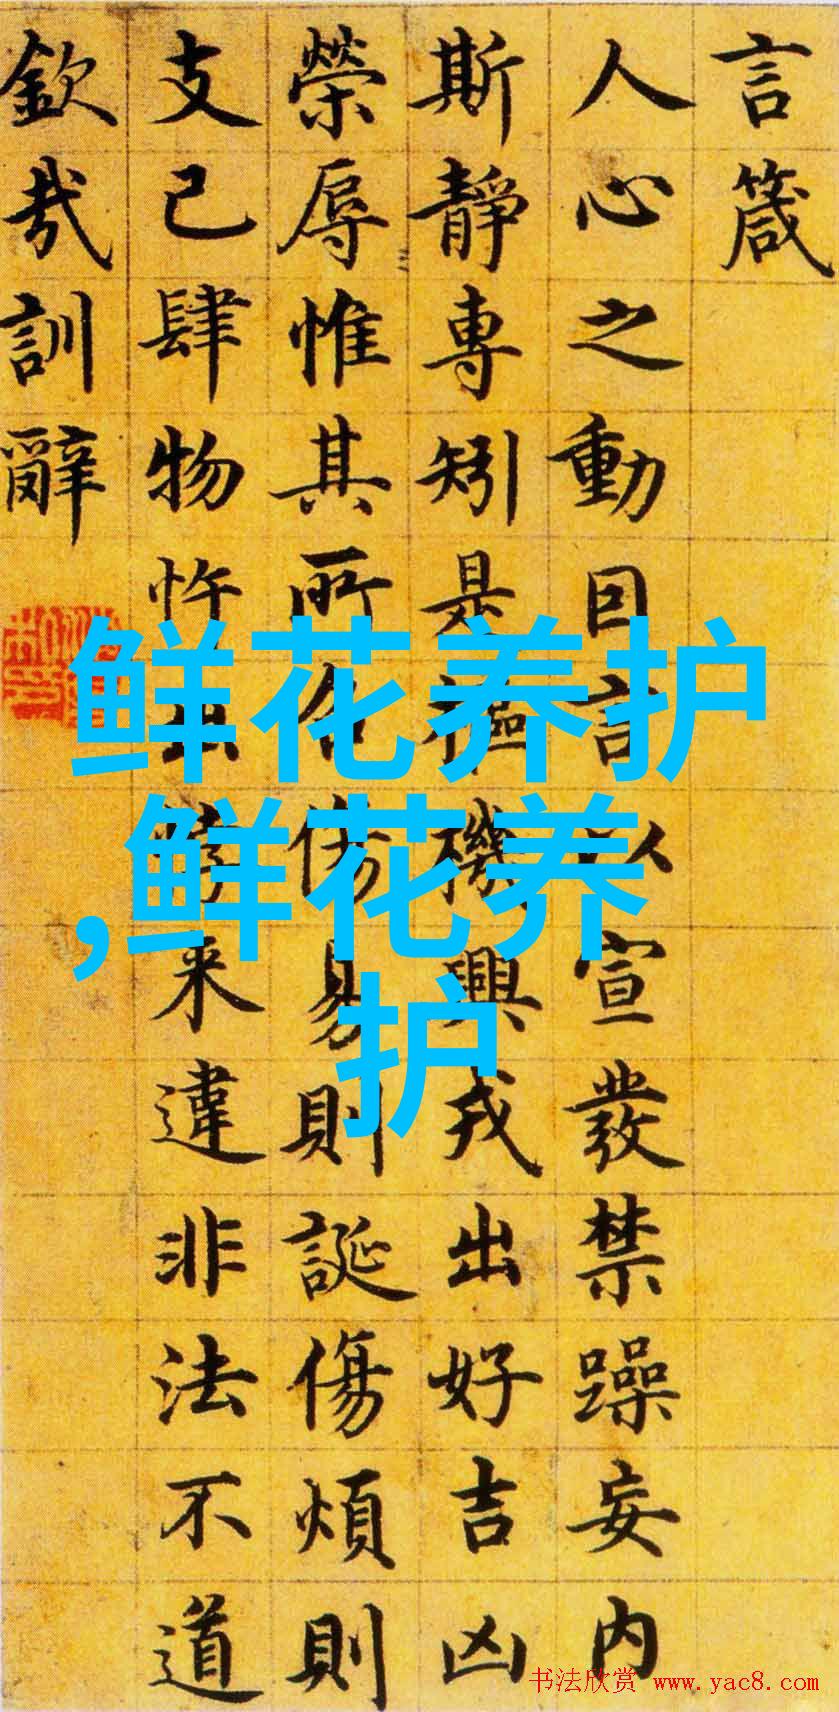 言箴
人心之動囙言以宣發禁躁妄内
斯靜專矧是樞機興戎出好吉凶
榮辱惟其所召傷易則誕傷煩則
支己肆物忤出悖来違非法不道
欽哉訓辭
鲜花养护
,鲜花养
护
书法欣赏 www.yac8.com